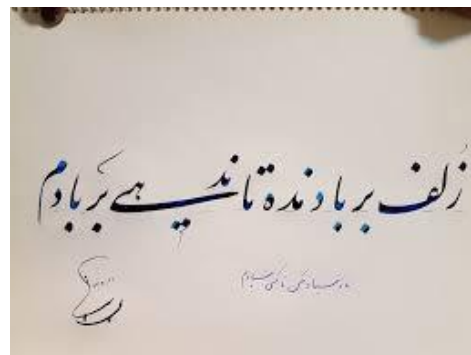 زلف بر باد مده تا ندهی بر بادم